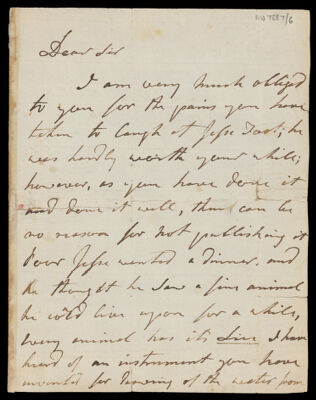 Dear Sir
I am very much obliged
to you for the pains you have
taken to laugh at Jesse Foot; he
was hardly worth your while;
however, as you have done it
and done it well, there can be
no reason for not publishing it
Poor Jesse wanted a dinner, and
he thought he saw a fine animal
he could live upon for a while,
every animal has its Lice I have
heard of an instrument you have
invented for drawing of the water from